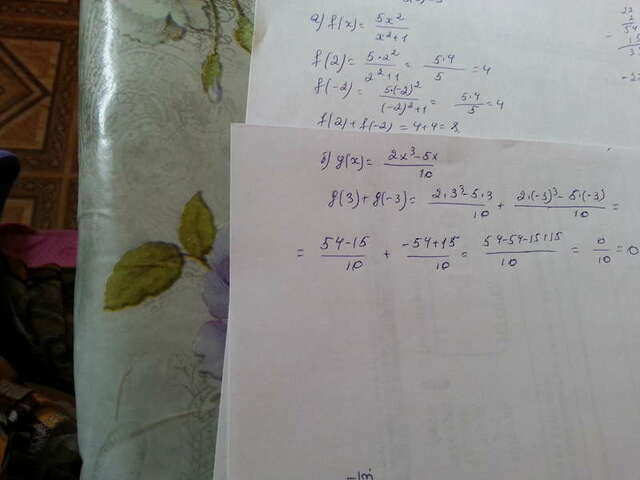 а) f(x) = 5x²/x²+1
f(2) = 5·2²/2²+1 = 5·4/5 = 4
f(-2) = 5·(-2)²/(-2)²+1 = 5·4/5 = 4
f(2) + f(-2) = 4+4 = 8
б) g(x) = 2x³-5x/10
g(3) + g(-3) = 2·3³-5·3/10 + 2·(-3)³-5·(-3)/10 =
= 54-15/10 + -54+15/10 = 54-54-15+15/10 = 0/10 = 0